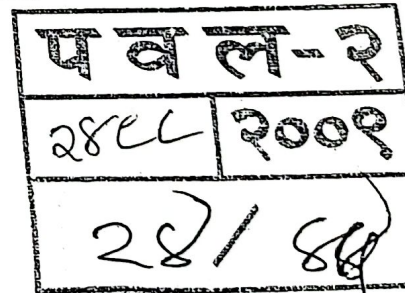 पवल-२
२४८८ २००९
२४/